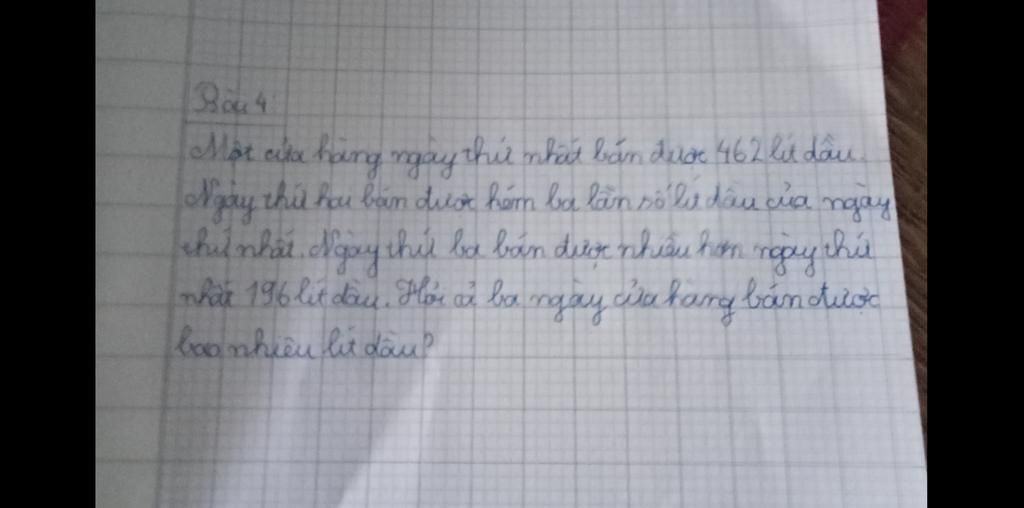 Bài 4
Một cửa hàng ngày thứ nhất bán được 462 lít dầu.
Ngày thứ hai bán được kém ba lần số lít dầu của ngày
thứ nhất. Ngày thứ ba bán được nhiều hơn ngày thứ
nhất 196 lít dầu. Hỏi cả ba ngày cửa hàng bán được
bao nhiêu lít dầu?